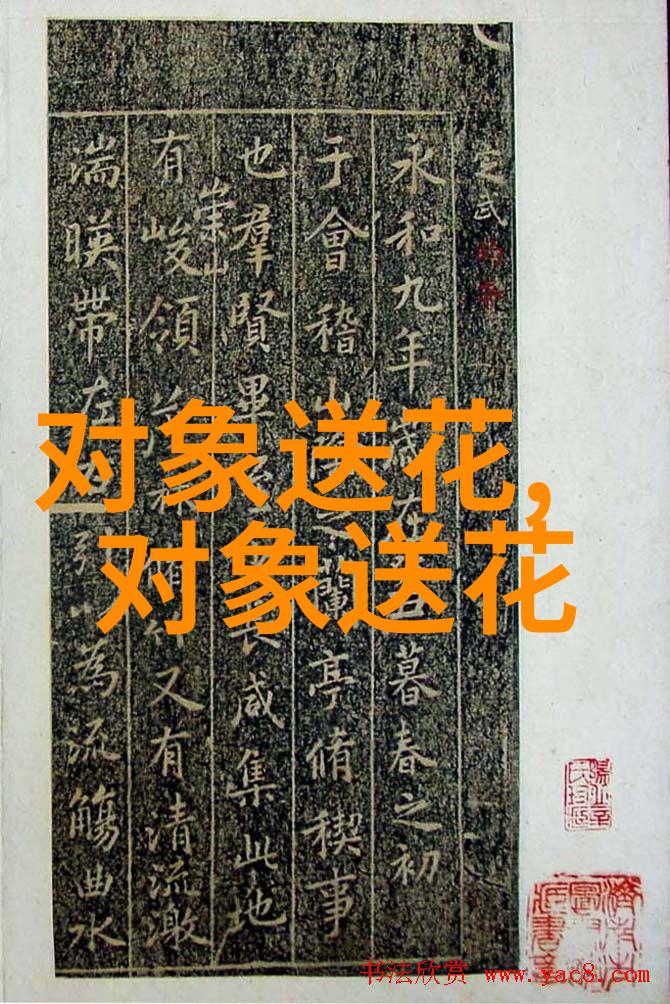 定武
永和九年歲在丑暮春之初
于會稽山陰之蘭亭脩稧事
也羣賢畢至長咸集此地
有崇山峻領茂林脩竹又有清流激
湍暎帶左右引以為流觴曲水
对象送花,
对象送花
书法欣赏 www.yac8.com